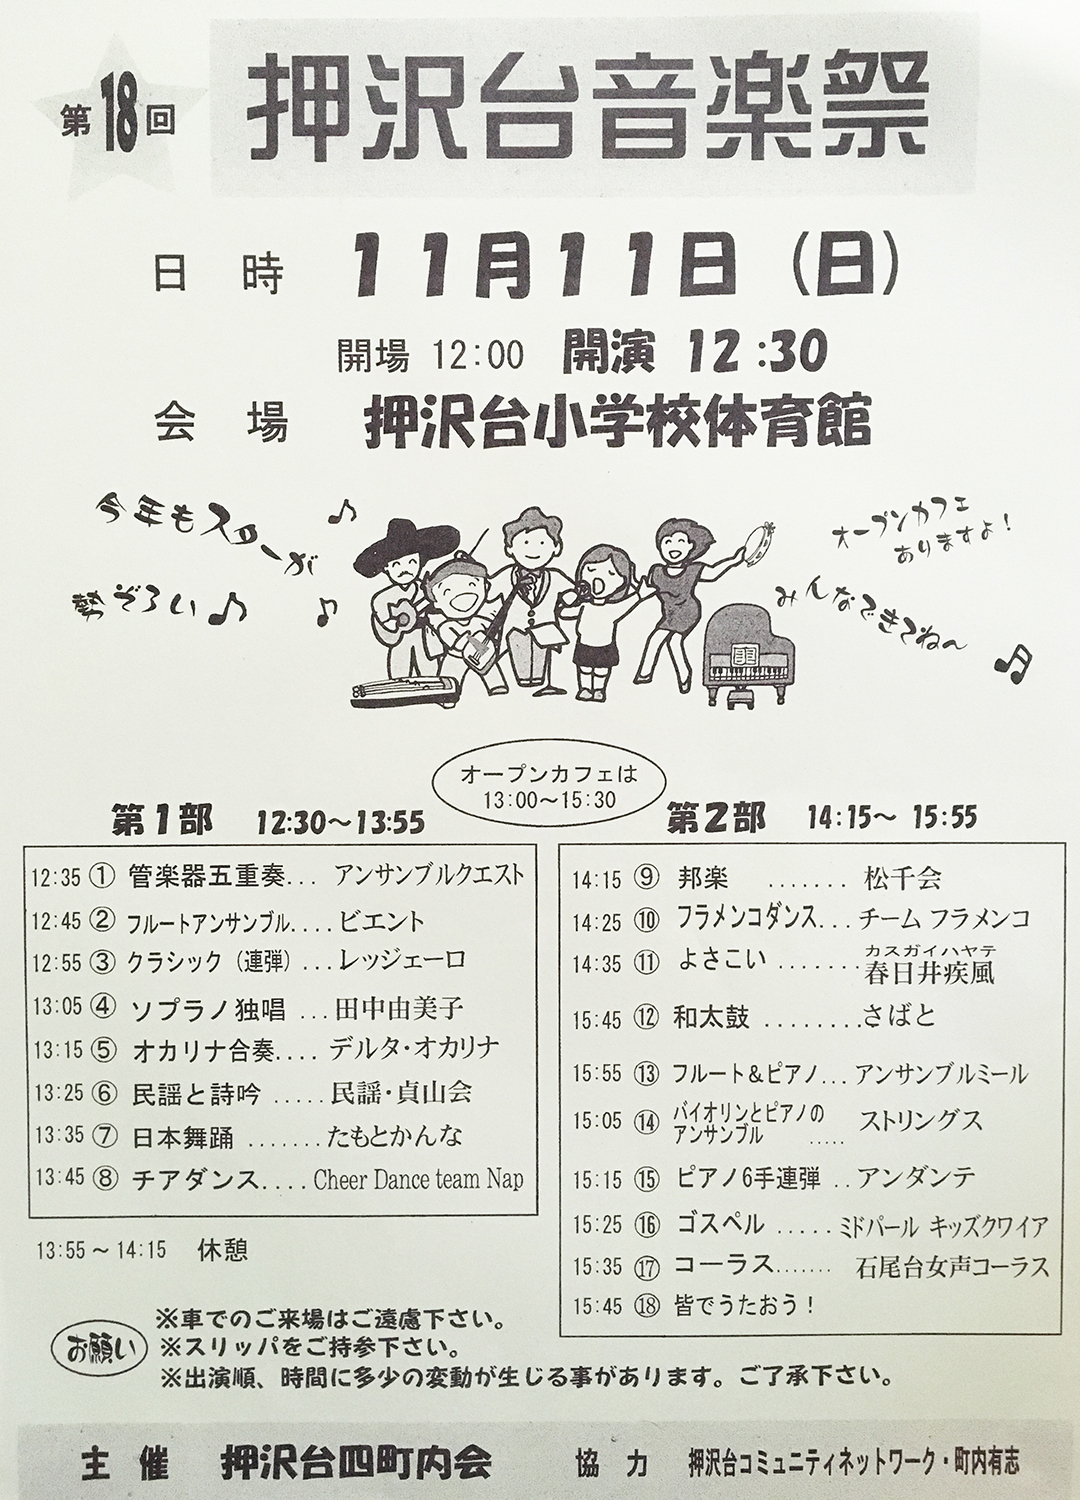 第18回 押沢台音楽祭
日時 11月11日(日)
開場 12:00 開演 12:30
会場 押沢台小学校体育館
今年もスターが
勢ぞろい
オープンカフェ
ありますよ!
みんなできてね〜
オープンカフェは
13:00〜15:30
第1部 12:30〜13:55
12:35 ① 管楽器五重奏... アンサンブルクエスト
12:45 ② フルートアンサンブル.... ビエント
12:55 ③ クラシック(連弾)... レッジェーロ
13:05 ④ ソプラノ独唱 ... 田中由美子
13:15 ⑤ オカリナ合奏.... デルタ・オカリナ
13:25 ⑥ 民謡と詩吟 ..... 民謡・貞山会
13:35 ⑦ 日本舞踊 ....... たもとかんな
13:45 ⑧ チアダンス.... Cheer Dance team Nap
13:55〜14:15 休憩
第2部 14:15〜15:55
14:15 ⑨ 邦楽 ....... 松千会
14:25 ⑩ フラメンコダンス... チーム フラメンコ
カスガイハヤテ
14:35 ⑪ よさこい ....... 春日井疾風
15:45 ⑫ 和太鼓 ........ さばと
15:55 ⑬ フルート&ピアノ... アンサンブルミール
15:05 ⑭ バイオリンとピアノの
アンサンブル ..... ストリングス
15:15 ⑮ ピアノ6手連弾 .. アンダンテ
15:25 ⑯ ゴスペル ..... ミドパール キッズクワイア
15:35 ⑰ コーラス....... 石尾台女声コーラス
15:45 ⑱ 皆でうたおう!
お願い
※車でのご来場はご遠慮下さい。
※スリッパをご持参下さい。
※出演順、時間に多少の変動が生じる事があります。ご了承下さい。
主催 押沢台四町内会 協力 押沢台コミュニティネットワーク・町内有志